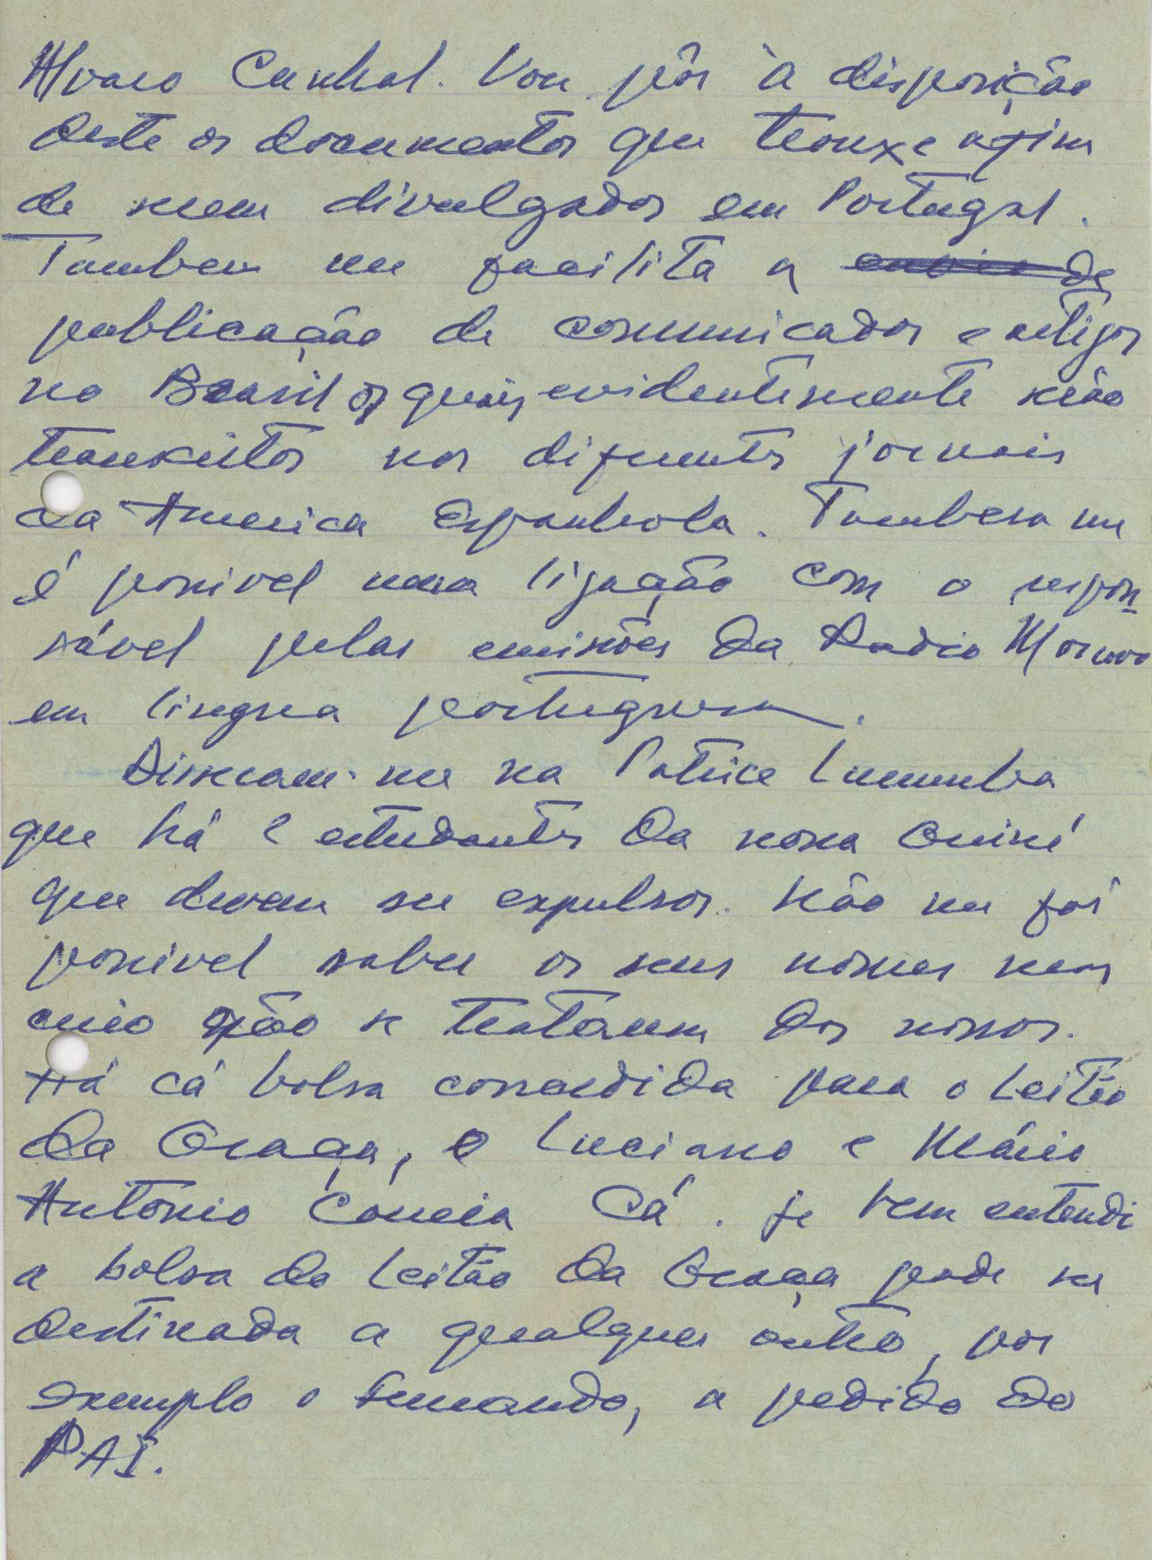 Alvaro Cunhal. Vou pôr à disposição
deste os documentos que trouxe afim
de serem divulgados em Portugal.
Tambem me facilita a de
publicação de comunicados e artigos
no Brasil os quais evidentemente serão
transcritos nos diferentes jornais
da America Espanhola. Tambem me
é possivel uma ligação com o respon-
sável pelas emissões da Radio Moscovo
em lingua portuguesa.
Disseram-me na Patrice Lumumba
que há 2 estudantes da nossa Guiné
que devem ser expulsos. Não me foi
possivel saber os seus nomes nem
creio não se tratarem dos nossos.
Há cá bolsa concedida para o Leitão
da Graça, o Luciano e Mário
António Correia Cá. Se bem entendi
a bolsa do Leitão da Graça pode ser
destinada a qualquer outro, por
exemplo o Fernando, a pedido do
PAI.